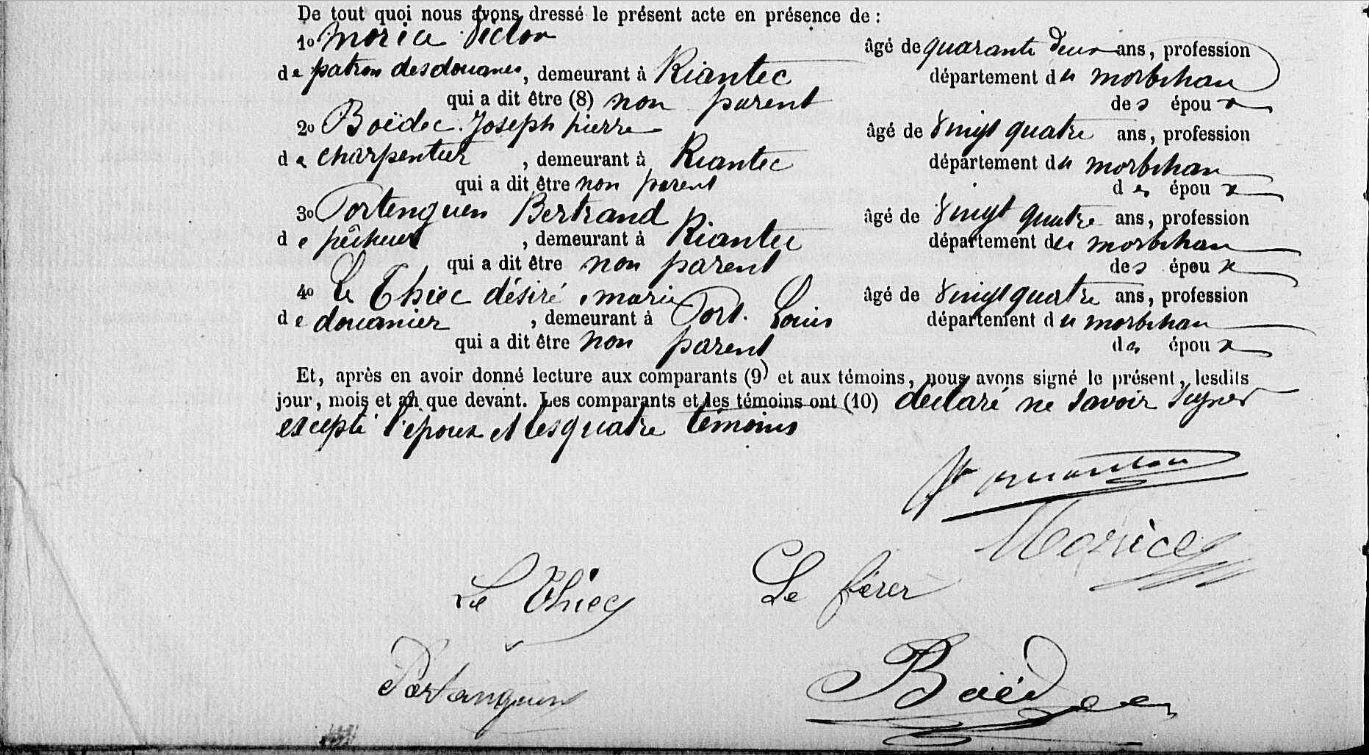 De tout quoi nous avons dressé le présent acte en présence de :
1o Morice Victor âgé de quarante deux ans, profession
de patron des douanes, demeurant à Riantec département du morbihan
qui a dit être (8) non parent des époux
2o Boëdec Joseph pierre âgé de vingt quatre ans, profession
de charpentier, demeurant à Riantec département du morbihan
qui a dit être non parent des époux
3o Portenguen Bertrand âgé de vingt quatre ans, profession
de pêcheur, demeurant à Riantec département du morbihan
qui a dit être non parent des époux
4o Le Thiec désiré marie âgé de vingt quatre ans, profession
de douanier, demeurant à Port. Louis département du morbihan
qui a dit être non parent des époux
Et, après en avoir donné lecture aux comparants (9) et aux témoins, nous avons signé le présent, lesdits
jour, mois et an que devant. Les comparants et les témoins ont (10) déclaré ne savoir signer
excepté l'époux et les quatre témoins
Morice
Le Thiec Le férer
Portanguen Boëdec